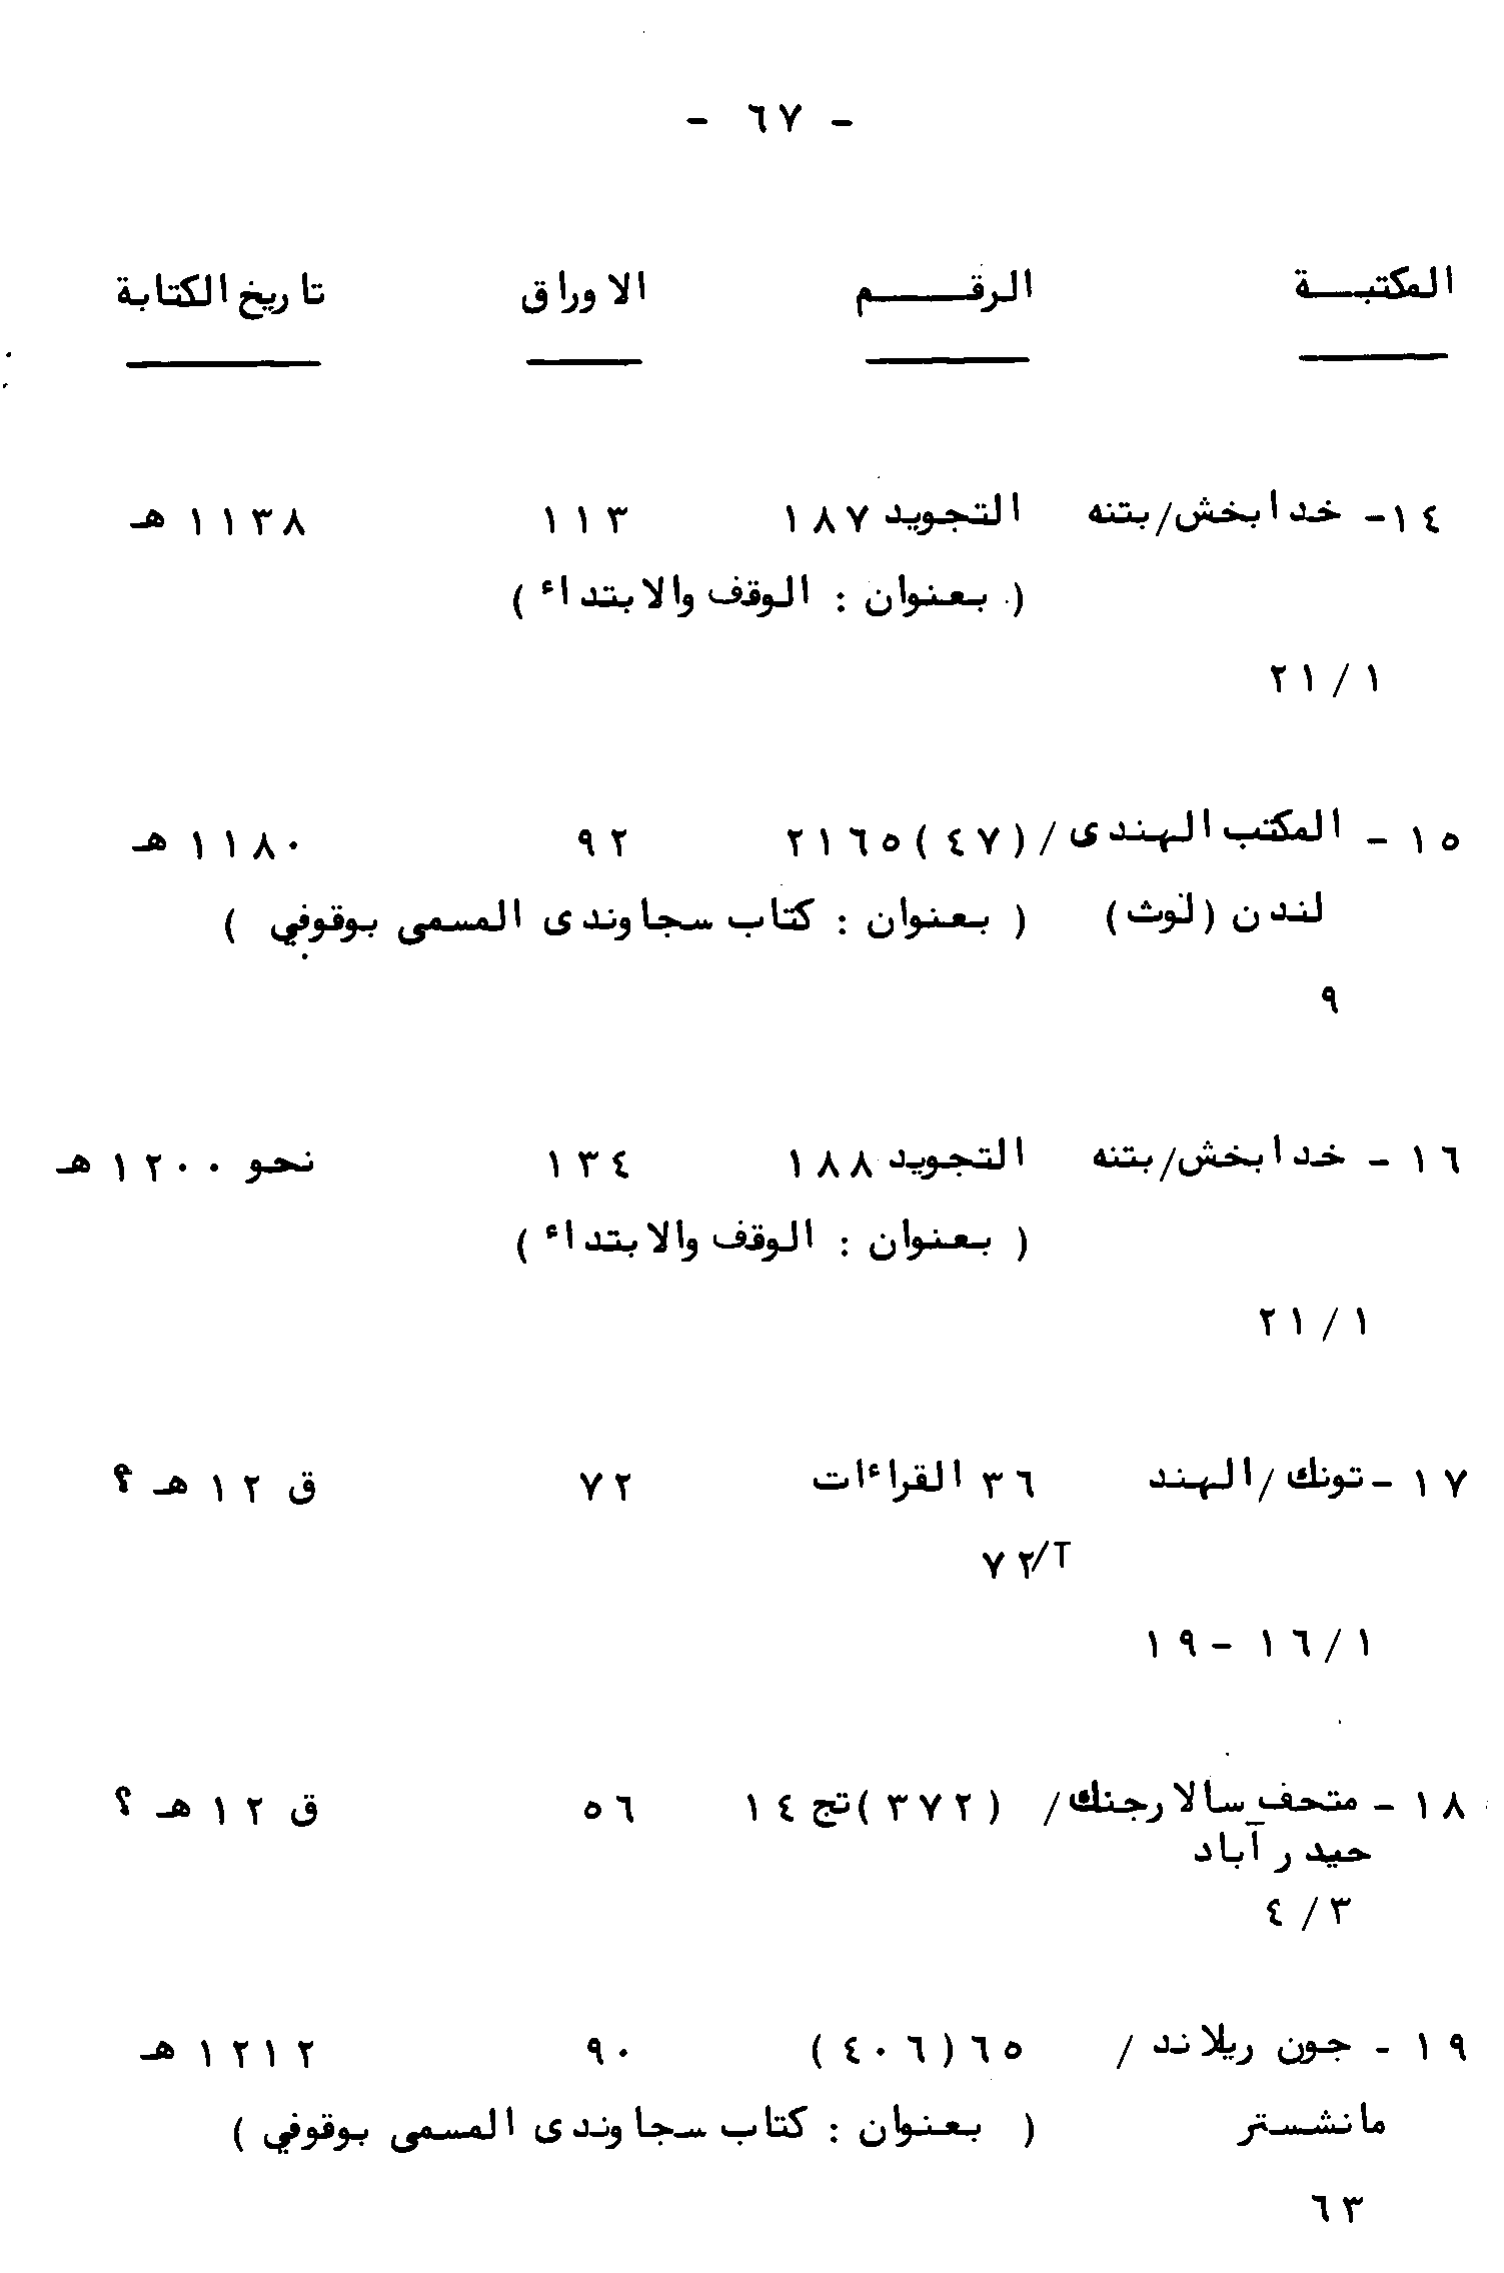 - ٦٧ -
المكتبـــة الرقـــــم الاوراق تاريخ الكتابة
١٤- خدابخش/بتنه التجويد ١٨٧ ١١٣ ١١٣٨ هـ
( بعنوان : الوقف والابتداء )
٢١/١
١٥ - المكتب الهندى / (٤٧)٢١٦٥ ٩٢ ١١٨٠ هـ
لندن (لوث) ( بعنوان : كتاب سجاوندى المسمى بوقوفي )
٩
١٦ - خدابخش/بتنه التجويد ١٨٨ ١٣٤ نحو ١٢٠٠ هـ
( بعنوان : الوقف والابتداء )
٢١/١
١٧ - تونك/الهند ٣٦ القراءات ٧٢ ق ١٢ هـ ؟
T/٧٢
١٦/١ - ١٩
١٨ - متحف سالارجنك/ (٣٧٢)تج ١٤ ٥٦ ق ١٢ هـ ؟
حيدر آباد
٤/٣
١٩ - جون ريلاند / ٦٥(٤٠٦) ٩٠ ١٢١٢ هـ
مانشستر ( بعنوان : كتاب سجاوندى المسمى بوقوفي )
٦٣